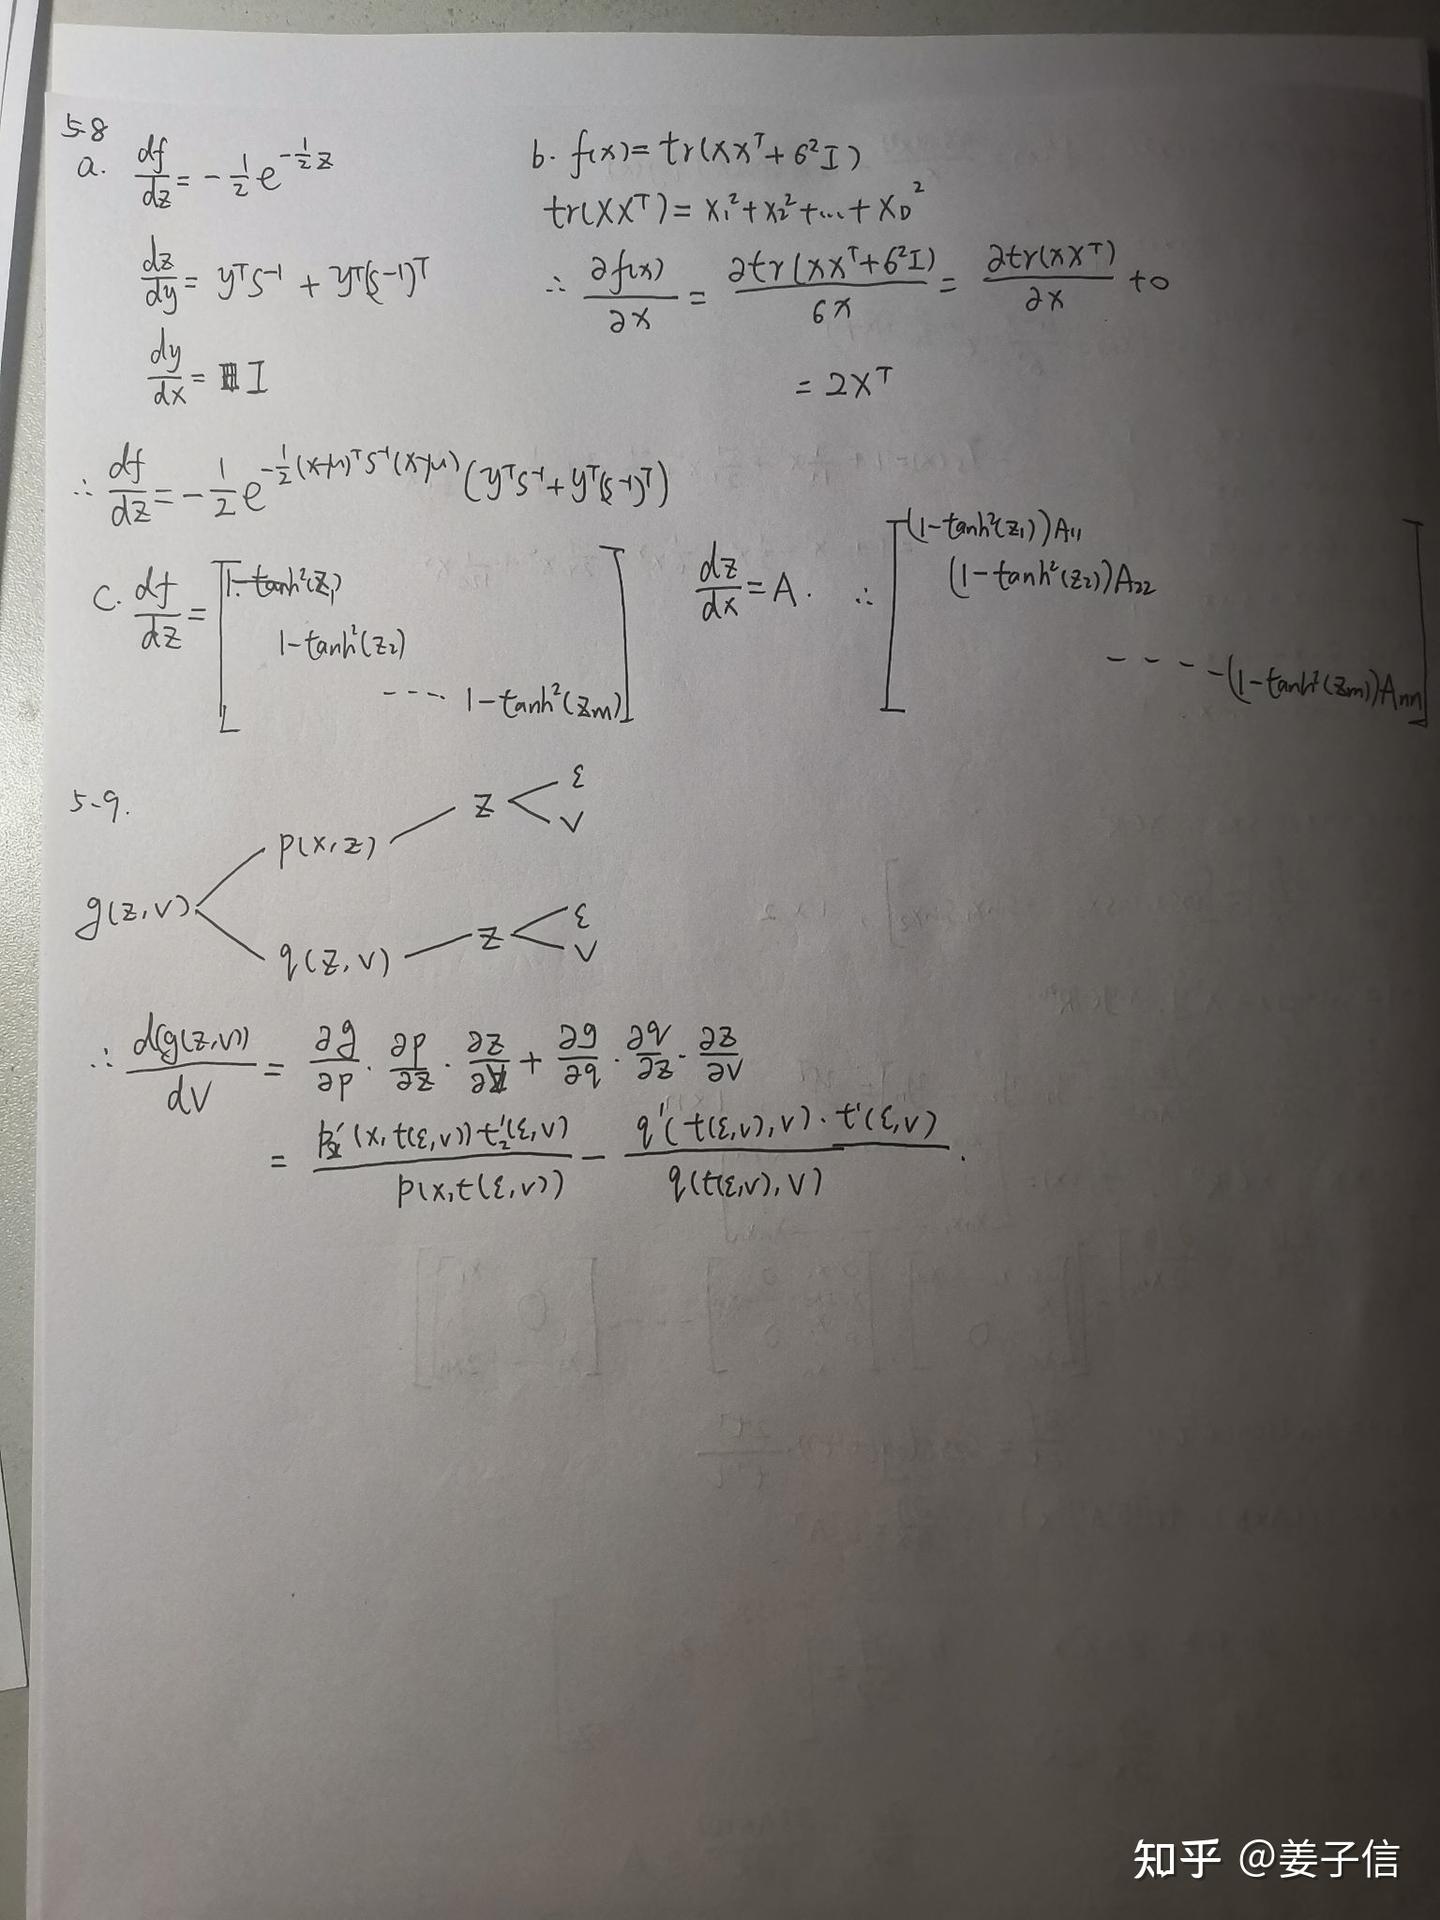 5-8
a. df/dz = -1/2 e^{-1/2 z}
dz/dy = yᵀS⁻¹ + yᵀ(S⁻¹)ᵀ
dy/dx = I
∴ df/dz = -1/2 e^{-1/2 (x-μ)ᵀS⁻¹(x-μ)} (yᵀS⁻¹ + yᵀ(S⁻¹)ᵀ)
b. f(x) = tr(xxᵀ + 6²I)
tr(xxᵀ) = x₁² + x₂² + ... + x_D²
∴ ∂f(x)/∂x = ∂tr(xxᵀ + 6²I)/6x = ∂tr(xxᵀ)/∂x + 0
= 2xᵀ
c. df/dz = [1-tanh²(z₁)
1-tanh²(z₂)
---- 1-tanh²(zm)]
dz/dx = A. ∴ [(1-tanh²(z₁))A₁₁
(1-tanh²(z₂))A₂₂
----(1-tanh²(zm))Ann]
5-9.
g(z,v)
p(x,z)
z
ε
v
q(z,v)
z
ε
v
∴ d(g(z,v))/dv = ∂g/∂p · ∂p/∂z · ∂z/∂v + ∂g/∂q · ∂q/∂z · ∂z/∂v
= p₂'(x,t(ε,v))t₂'(ε,v)/p(x,t(ε,v)) - q'(t(ε,v),v)·t'(ε,v)/q(t(ε,v),v).
知乎 @姜子信